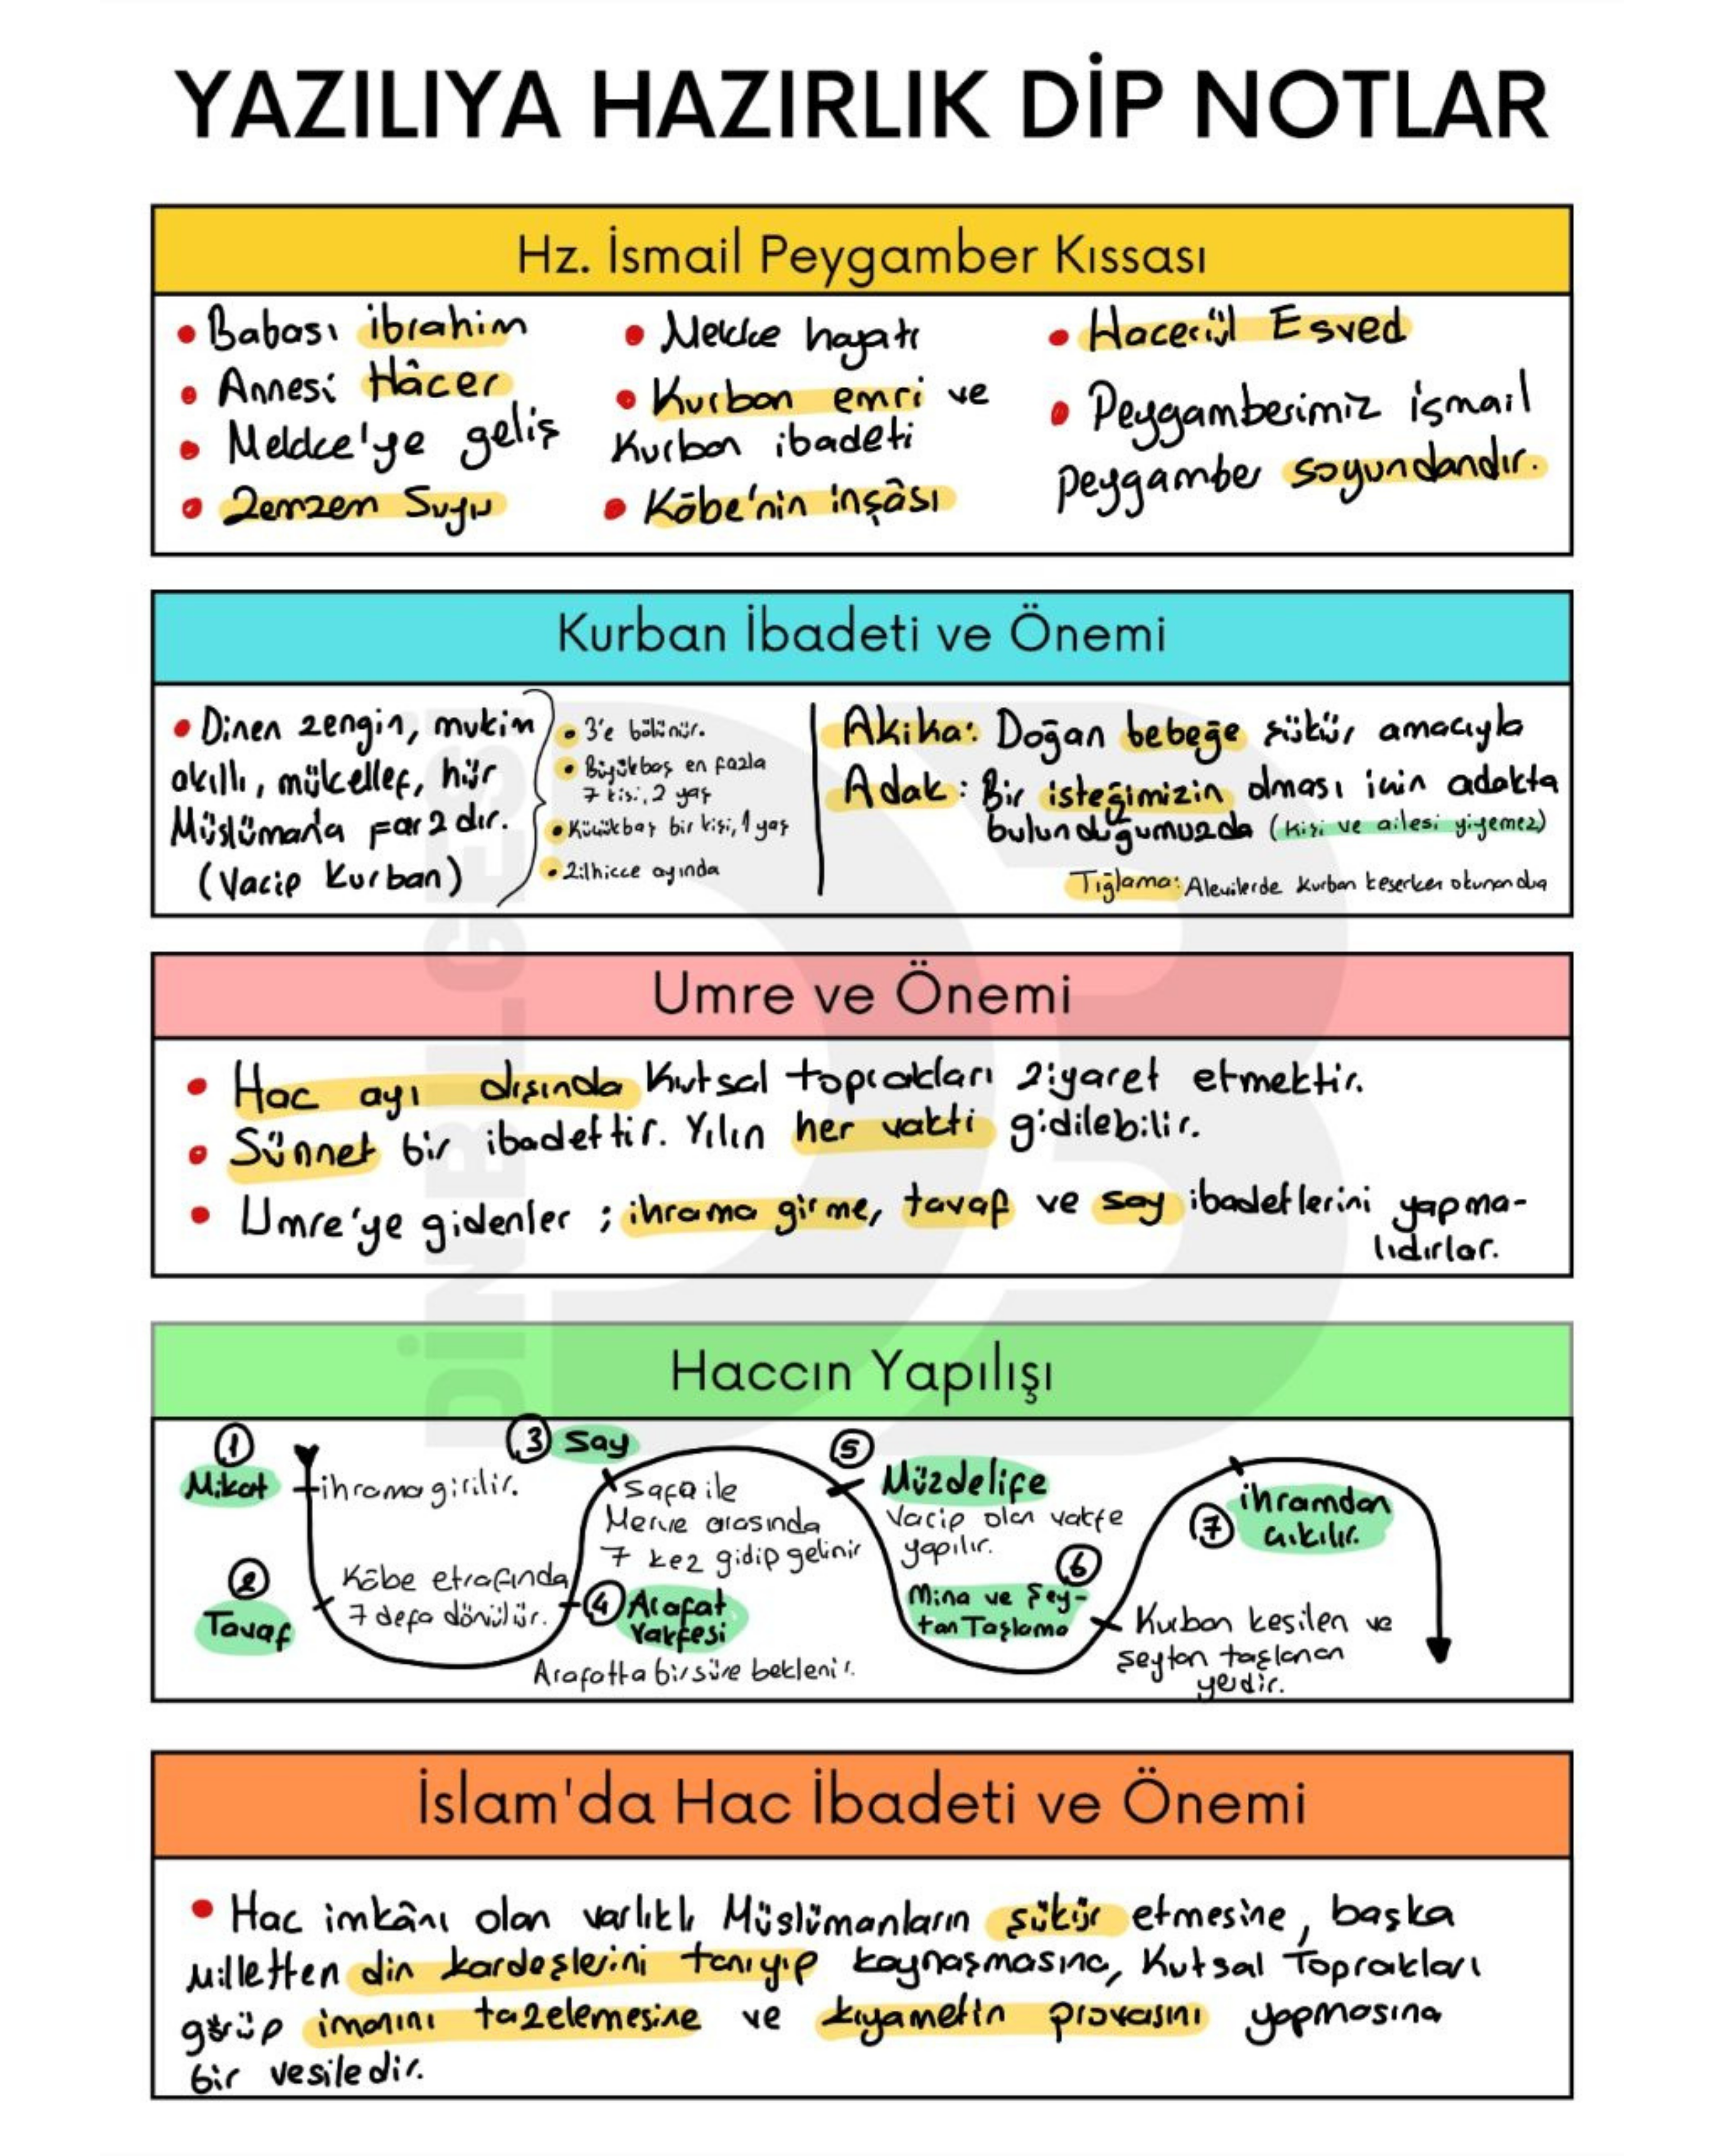 YAZILIYA HAZIRLIK DİP NOTLAR
Hz. İsmail Peygamber Kıssası
• Babası ibrahim
• Annesi Hâcer
• Mekke'ye geliş
• Zemzem Suyu
• Mekke hayatı
• Kurban emri ve
Kurban ibadeti
• Kâbe'nin inşâsı
• Hacerül Esved
• Peygamberimiz ismail
peygamber soyundandır.
Kurban İbadeti ve Önemi
• Dinen zengin, mukim
akıllı, mükellef, hür
Müslümana farzdır.
(Vacip Kurban)
• 3'e bölünür.
• Büyükbaş en fazla
7 kişi, 2 yaş
• Küçükbaş bir kişi, 1 yaş
• Zilhicce ayında
Akika: Doğan bebeğe şükür amacıyla
Adak: Bir isteğimizin olması için adakta
bulunduğumuzda (kişi ve ailesi yiyemez)
Tığlama: Alevilerde kurban keserken okunan dua
Umre ve Önemi
• Hac ayı dışında Kutsal toprakları ziyaret etmektir.
• Sünnet bir ibadettir. Yılın her vakti gidilebilir.
• Umre'ye gidenler ; ihrama girme, tavaf ve say ibadetlerini yapma-
lıdırlar.
DİNBİLGESİ
DB
Haccın Yapılışı
1
Mikat
ihrama girilir.
2
Tavaf
Kâbe etrafında
7 defa dönülür.
3 Say
Safa ile
Merve arasında
7 kez gidip gelinir
4 Arafat
Vakfesi
Arafatta bir süre beklenir.
5
Müzdelife
Vacip olan vakfe
yapılır.
6
Mina ve Şey-
tan Taşlama
Kurban kesilen ve
şeytan taşlanan
yerdir.
7 ihramdan
çıkılır.
İslam'da Hac İbadeti ve Önemi
• Hac imkânı olan varlıklı Müslümanların şükür etmesine, başka
Milletten din kardeşlerini tanıyıp kaynaşmasına, Kutsal Toprakları
görüp imanını tazelemesine ve kıyametin provasını yapmasına
bir vesiledir.